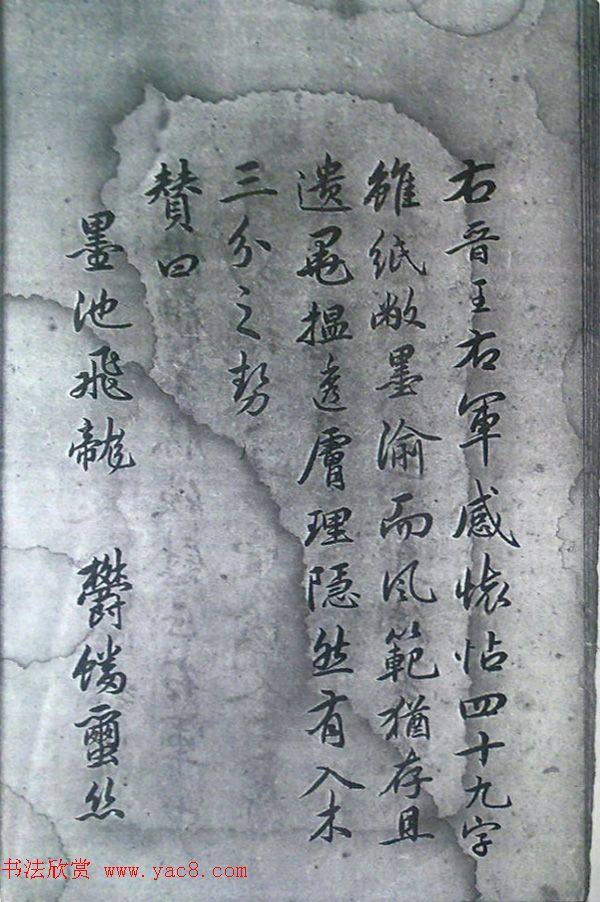 右晉王右軍感懷帖四十九字
雖紙敝墨渝而風範猶存且
遺毫揾透膚理隱然有入木
三分之勢
贊曰
墨池飛龍 鬱蟠蠒絲
书法欣赏 www.yac8.com